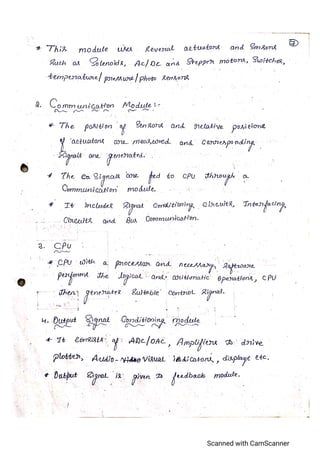 * This module uses several actuators and sensors
such as solenoids, AC/DC and Stepper motors, Switches,
temperature/pressure/photo sensors
2. Communication Module:-
* The position of sensors and relative positions
of actuators are measured and corresponding
signals are generated.
* The signals are fed to CPU through a
Communication module.
* It includes signal conditioning circuits, Interfacing
Circuits and Bus Communication.
3. CPU :
* CPU with a processor and necessary software
performs the logical and arithmatic operations, CPU
then generates suitable control signal.
4. Output Signal Conditioning module
* It consists of ADC/DAC, Amplifiers to drive
plotter, Audio-visual indicators, displays etc.
* Output signal is given to feedback module.
Scanned with CamScanner